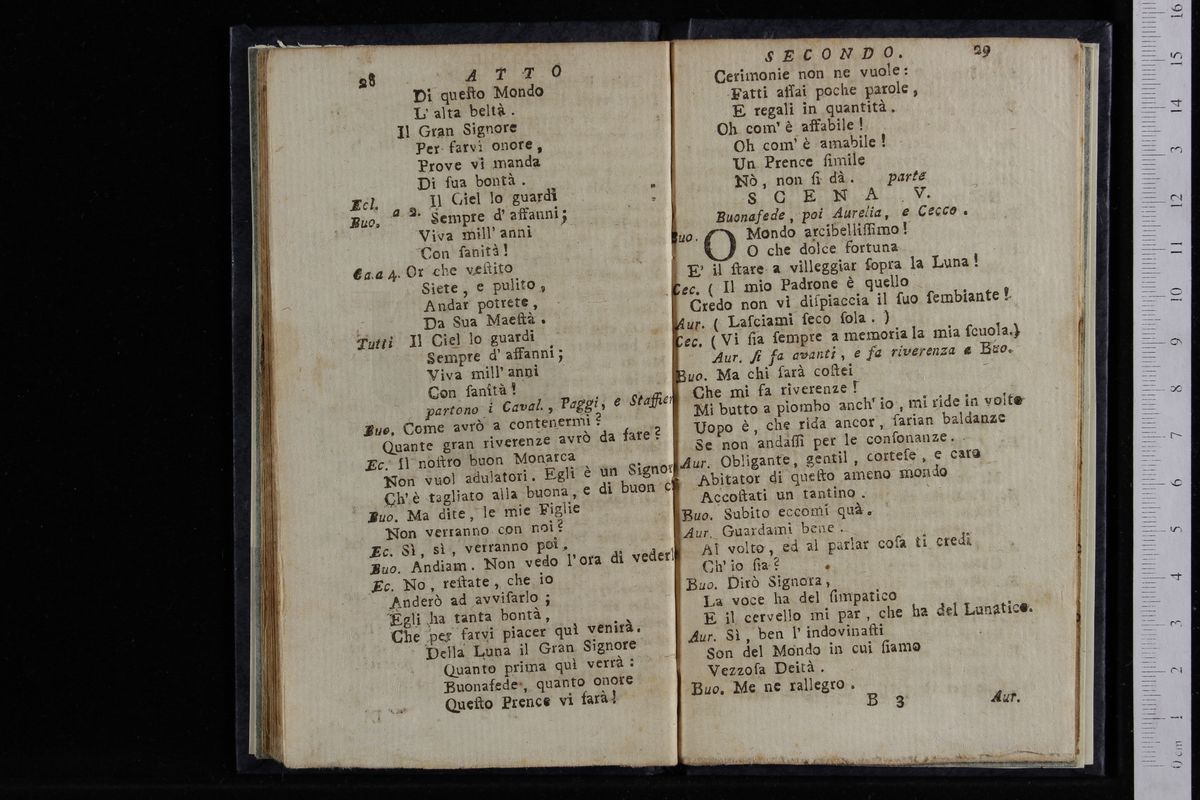 28 ATTO
Di queſto Mondo
L' alta beltà.
Il Gran Signore
Per farvi onore,
Prove vi manda
Di ſua bontà.
Ecl. Buo. a 2. Il Ciel lo guardi
Sempre d' affanni;
Viva mill' anni
Con ſanità!
Ca. a 4. Or che veſtito
Siete, e pulito,
Andar potrete,
Da Sua Maeſtà.
Tutti Il Ciel lo guardi
Sempre d' affanni;
Viva mill' anni
Con ſanità!
partono i Caval., Paggi, e Staffier
Buo. Come avrò a contenermi?
Quante gran riverenze avrò da fare?
Ec. Il noſtro buon Monarca
Non vuol adulatori. Egli è un Signor
Ch' è tagliato alla buona, e di buon
Buo. Ma dite, le mie Figlie
Non verranno con noi?
Ec. Sì, sì, verranno poi.
Buo. Andiam. Non vedo l'ora di vederl
Ec. No, reſtate, che io
Anderò ad avviſarlo;
Egli ha tanta bontà,
Che per farvi piacer quì venirà.
Della Luna il Gran Signore
Quanto prima quì verrà:
Buonafede, quanto onore
Queſto Prence vi farà!
SECONDO. 29
Cerimonie non ne vuole:
Fatti aſſai poche parole,
E regali in quantità.
Oh com' è affabile!
Oh com' è amabile!
Un Prence ſimile
Nò, non ſi dà. parte
SCENA V.
Buonafede, poi Aurelia, e Cecco.
Buo. O Mondo arcibelliſſimo!
O che dolce fortuna
E' il ſtare a villeggiar ſopra la Luna!
Cec. ( Il mio Padrone è quello
Credo non vi diſpiaccia il ſuo ſembiante!
Aur. ( Laſciami ſeco ſola. )
Cec. ( Vi ſia ſempre a memoria la mia ſcuola.)
Aur. ſi fa avanti, e fa riverenza a Buo.
Buo. Ma chi ſarà coſtei
Che mi fa riverenze!
Mi butto a piombo anch' io, mi ride in volto
Uopo è, che rida ancor, ſarian baldanze
Se non andaſſi per le conſonanze.
Aur. Obligante, gentil, corteſe, e caro
Abitator di queſto ameno mondo
Accoſtati un tantino.
Buo. Subito eccomi quà.
Aur. Guardami bene.
Al volto, ed al parlar coſa ti credi
Ch' io ſia?
Buo. Dirò Signora,
La voce ha del ſimpatico
E il cervello mi par, che ha del Lunatico.
Aur. Sì, ben l' indovinaſti
Son del Mondo in cui ſiamo
Vezzoſa Deità.
Buo. Me ne rallegro.
B 3 Aur.
0 cm 1 2 3 4 5 6 7 8 9 10 11 12 3 14 15 16